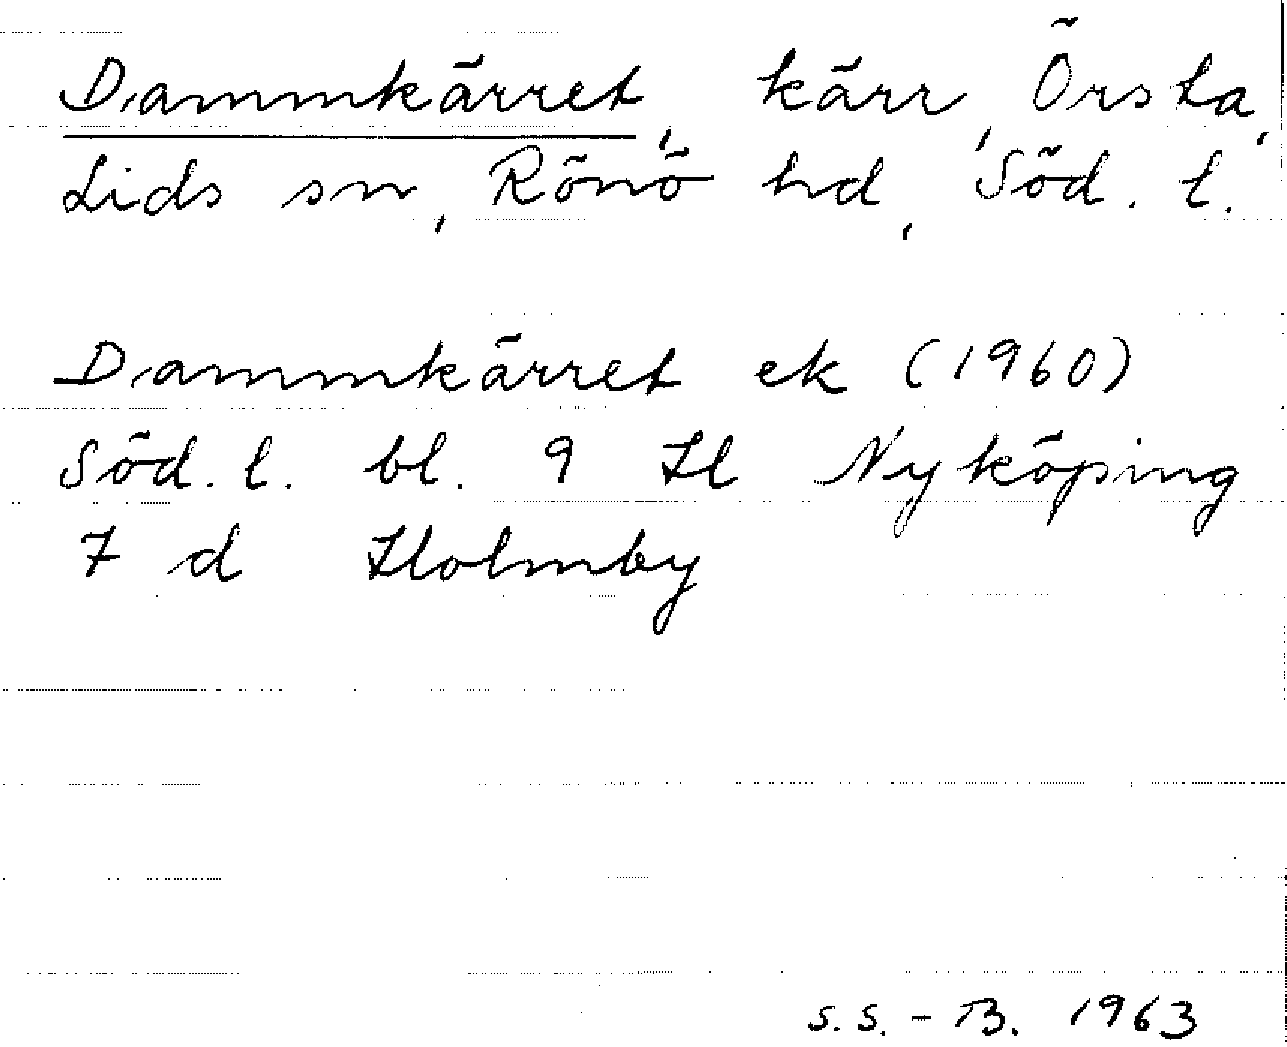 Dammkärret, kärr, Örsta,
Lids sn, Rönö hd, Söd. l.
Dammkärret ek (1960)
Söd. l. bl. 9 H Nyköping
7 d Holmby
S.S.-B. 1963